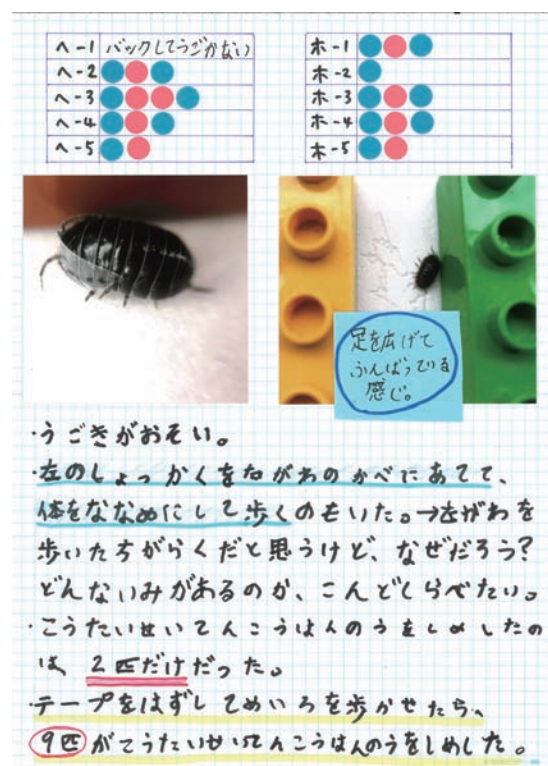 ヘ-1 バックしてうごかない
ヘ-2
ヘ-3
ヘ-4
ヘ-5
ホ-1
ホ-2
ホ-3
ホ-4
ホ-5
足を広げて
ふんばっている
感じ。
・うごきがおそい。
・左のしょっかくを右がわのかべにあてて、
体をななめにして歩くのもいた。→左がわを
歩いた方がらくだと思うけど、なぜだろう?
どんないみがあるのか、こんどしらべたい。
・こうたいせいてんこうはんのうをしめしたの
は、2匹だけだった。
・テープをはずしてめいろを歩かせたら、
9匹がこうたいせいてんこうはんのうをしめした。